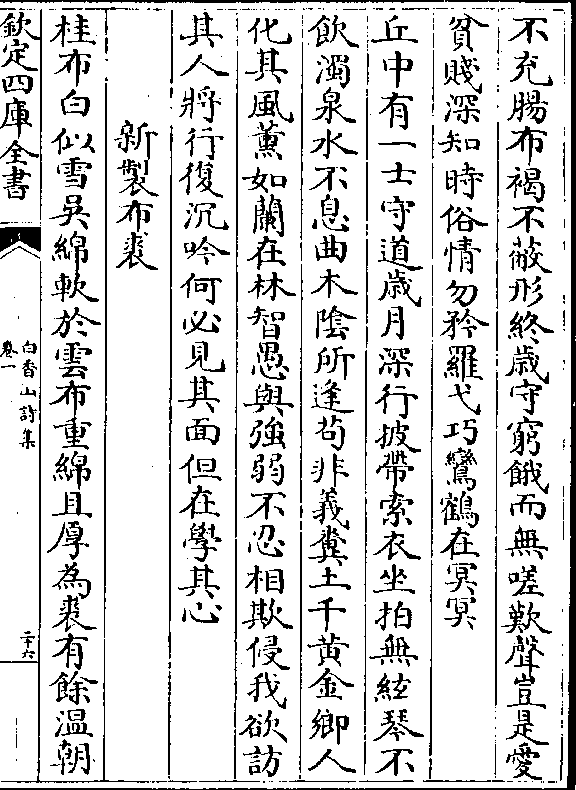 不充腸布褐不蔽形終歳守窮餓而無嗟歎聲豈是愛
貧賤深知時俗情勿矜羅弋巧鸞鶴在冥冥
丘中有一士守道歳月深行披帶索衣坐拍無絃琴不
飲濁泉水不息曲木陰所逢茍非義糞土千黃金鄉人
化其風薰如蘭在林智愚與強弱不忍相欺侵我欲訪
其人將行復沉吟何必見其面但在學其心
新製布裘
桂布白似雪吳綿軟於雲布重綿且厚為裘有餘溫朝
欽定四庫全書
白香山詩集
卷一
二十六